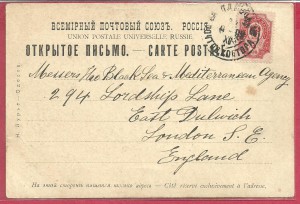 ВСЕМІРНЫЙ ПОЧТОВЫЙ СОЮЗЪ. РОССІЯ
UNION POSTALE UNIVERSELLE RUSSIE.
ОТКРЫТОЕ ПИСЬМО. — CARTE POSTALE
Messieurs The Black Sea & Mediterranean Agency
294 Lordship Lane
East Dulwich
London S. E.
England
На этой сторонѣ пишется только адресъ — Côté réservé exclusivement à l'adresse.